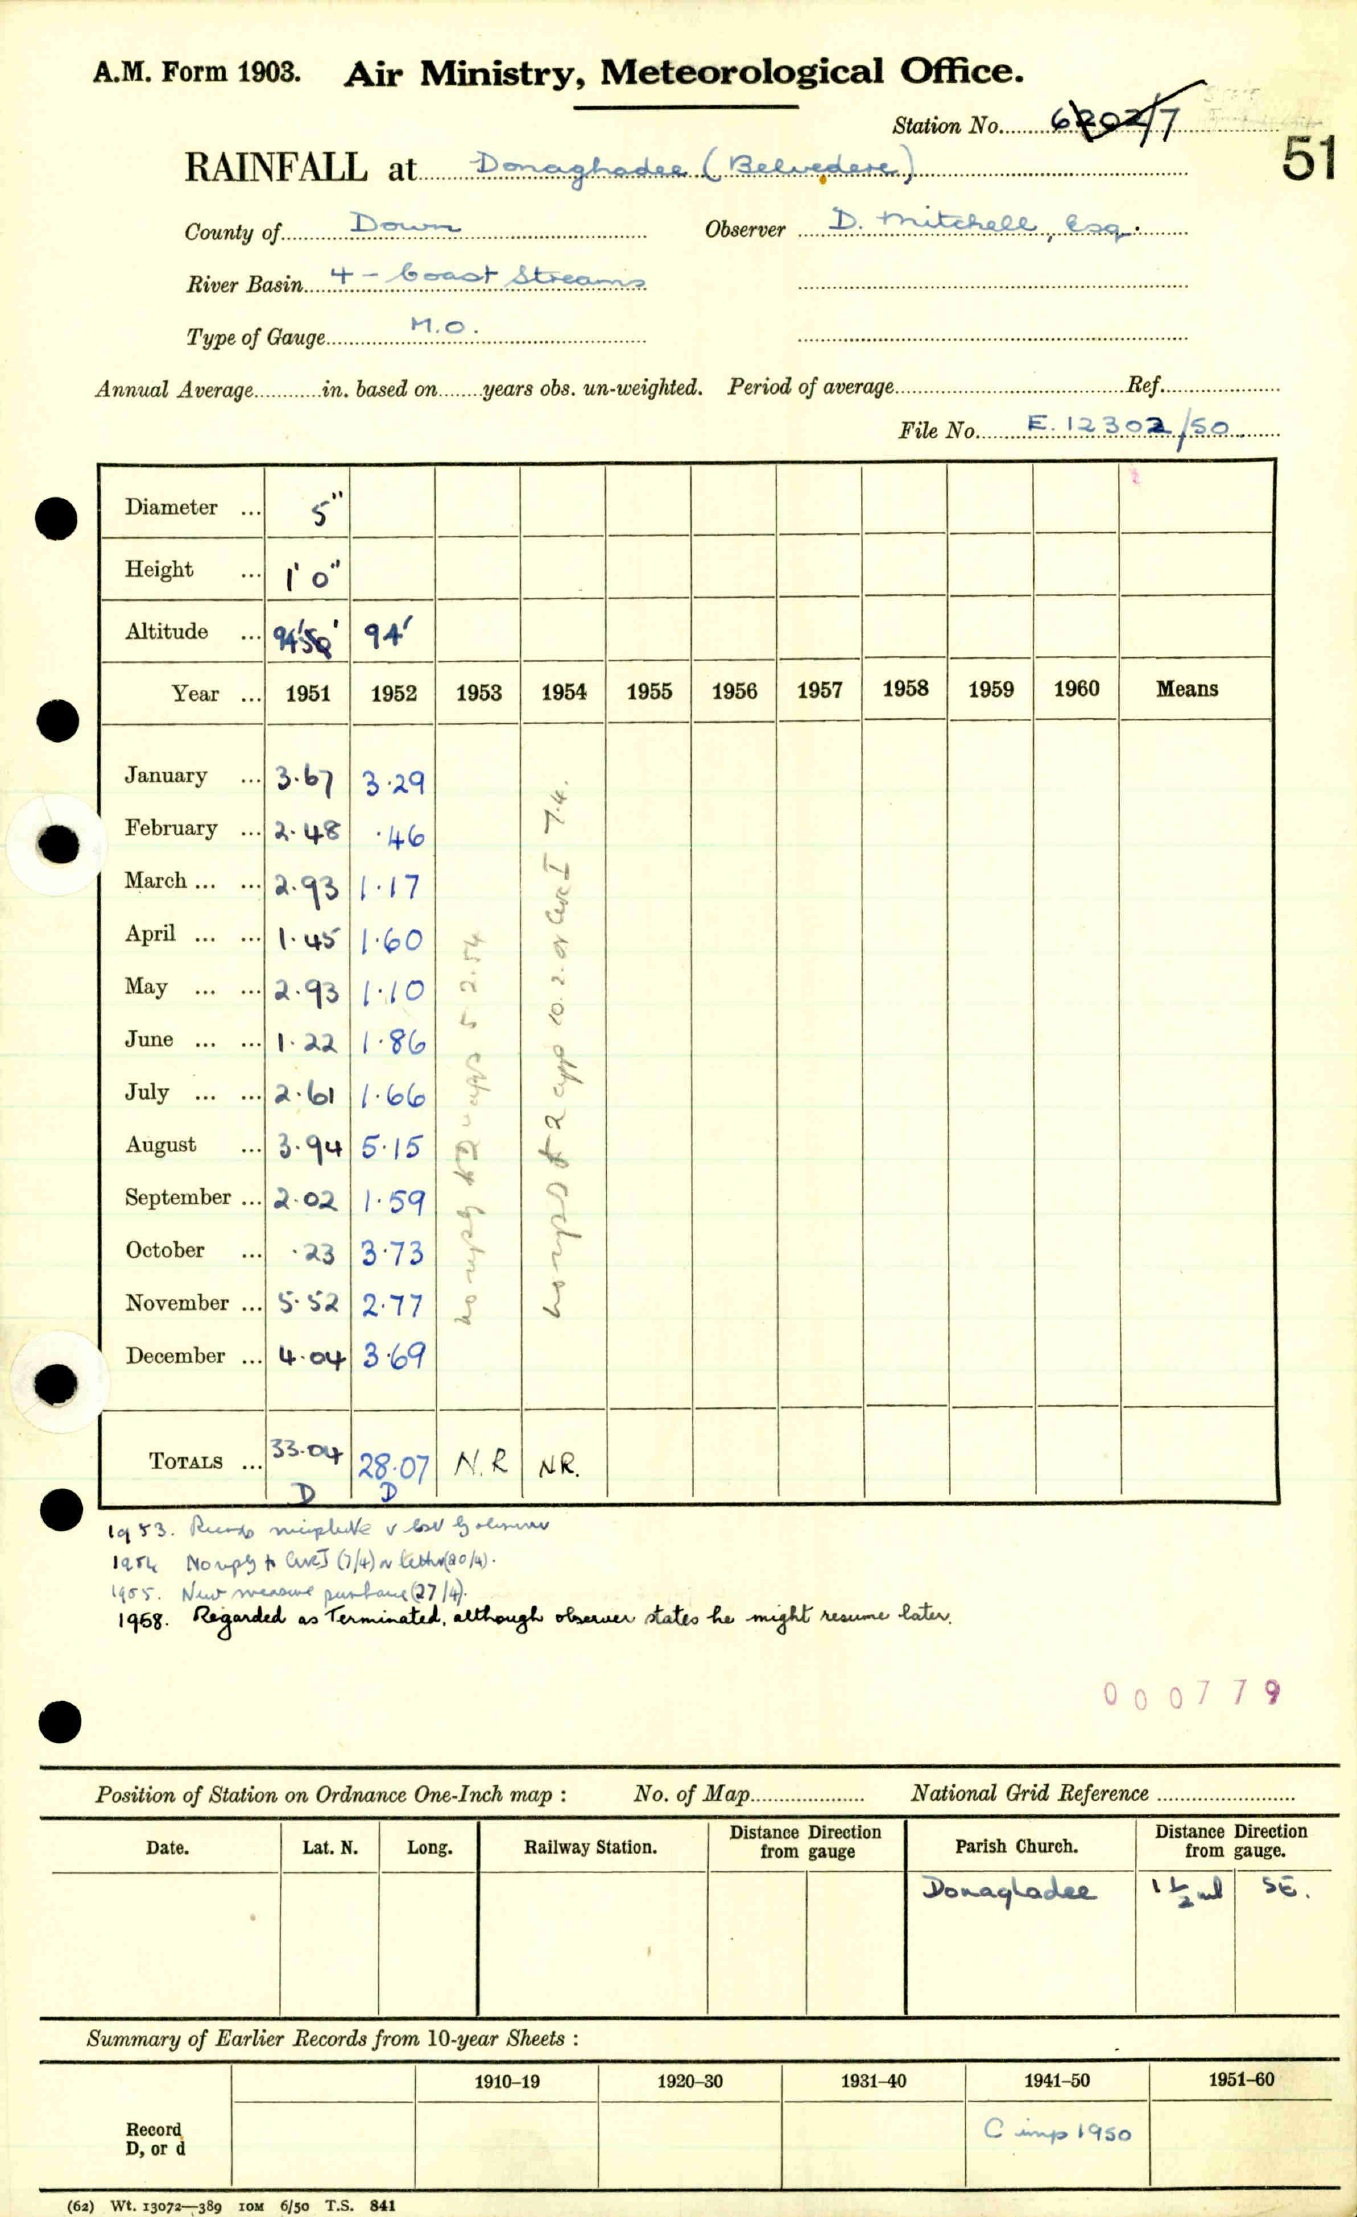 A.M. Form 1903. Air Ministry, Meteorological Office.
Station No. 6202/7
51
RAINFALL at Donaghadee (Belvedere)
County of Down Observer D. Mitchell, Esq.
River Basin 4 - Coast Streams
Type of Gauge M.O.
Annual Average in. based on years obs. un-weighted. Period of average Ref.
File No. E.12302/50
Diameter ... 5"
Height ... 1' 0"
Altitude ... 94' 50' 94'
Year ... 1951 1952 1953 1954 1955 1956 1957 1958 1959 1960 Means
January ... 3.67 3.29
February ... 2.48 .46
March ... ... 2.93 1.17
April ... ... 1.45 1.60
May ... ... 2.93 1.10
June ... ... 1.22 1.86
July ... ... 2.61 1.66
August ... 3.94 5.15
September ... 2.02 1.59
October ... .23 3.73
November ... 5.52 2.77
December ... 4.04 3.69
no reply 5.2.54
no reply to 2 10.2. or CircI 7.4.
TOTALS ... 33.04 28.07 N.R NR.
D D
1953. Records incomplete
1954 No reply to CircI (7/4) or letter (20/4).
1955. New measure purchase (27/4).
1958. Regarded as Terminated, although observer states he might resume later.
000779
Position of Station on Ordnance One-Inch map : No. of Map National Grid Reference
Date. Lat. N. Long. Railway Station. Distance from Direction gauge Parish Church. Distance from Direction gauge.
Donaghadee 1½ ml SE.
Summary of Earlier Records from 10-year Sheets :
1910–19 1920–30 1931–40 1941–50 1951–60
Record D, or d C inp 1950
(62) Wt. 13072—389 10M 6/50 T.S. 841